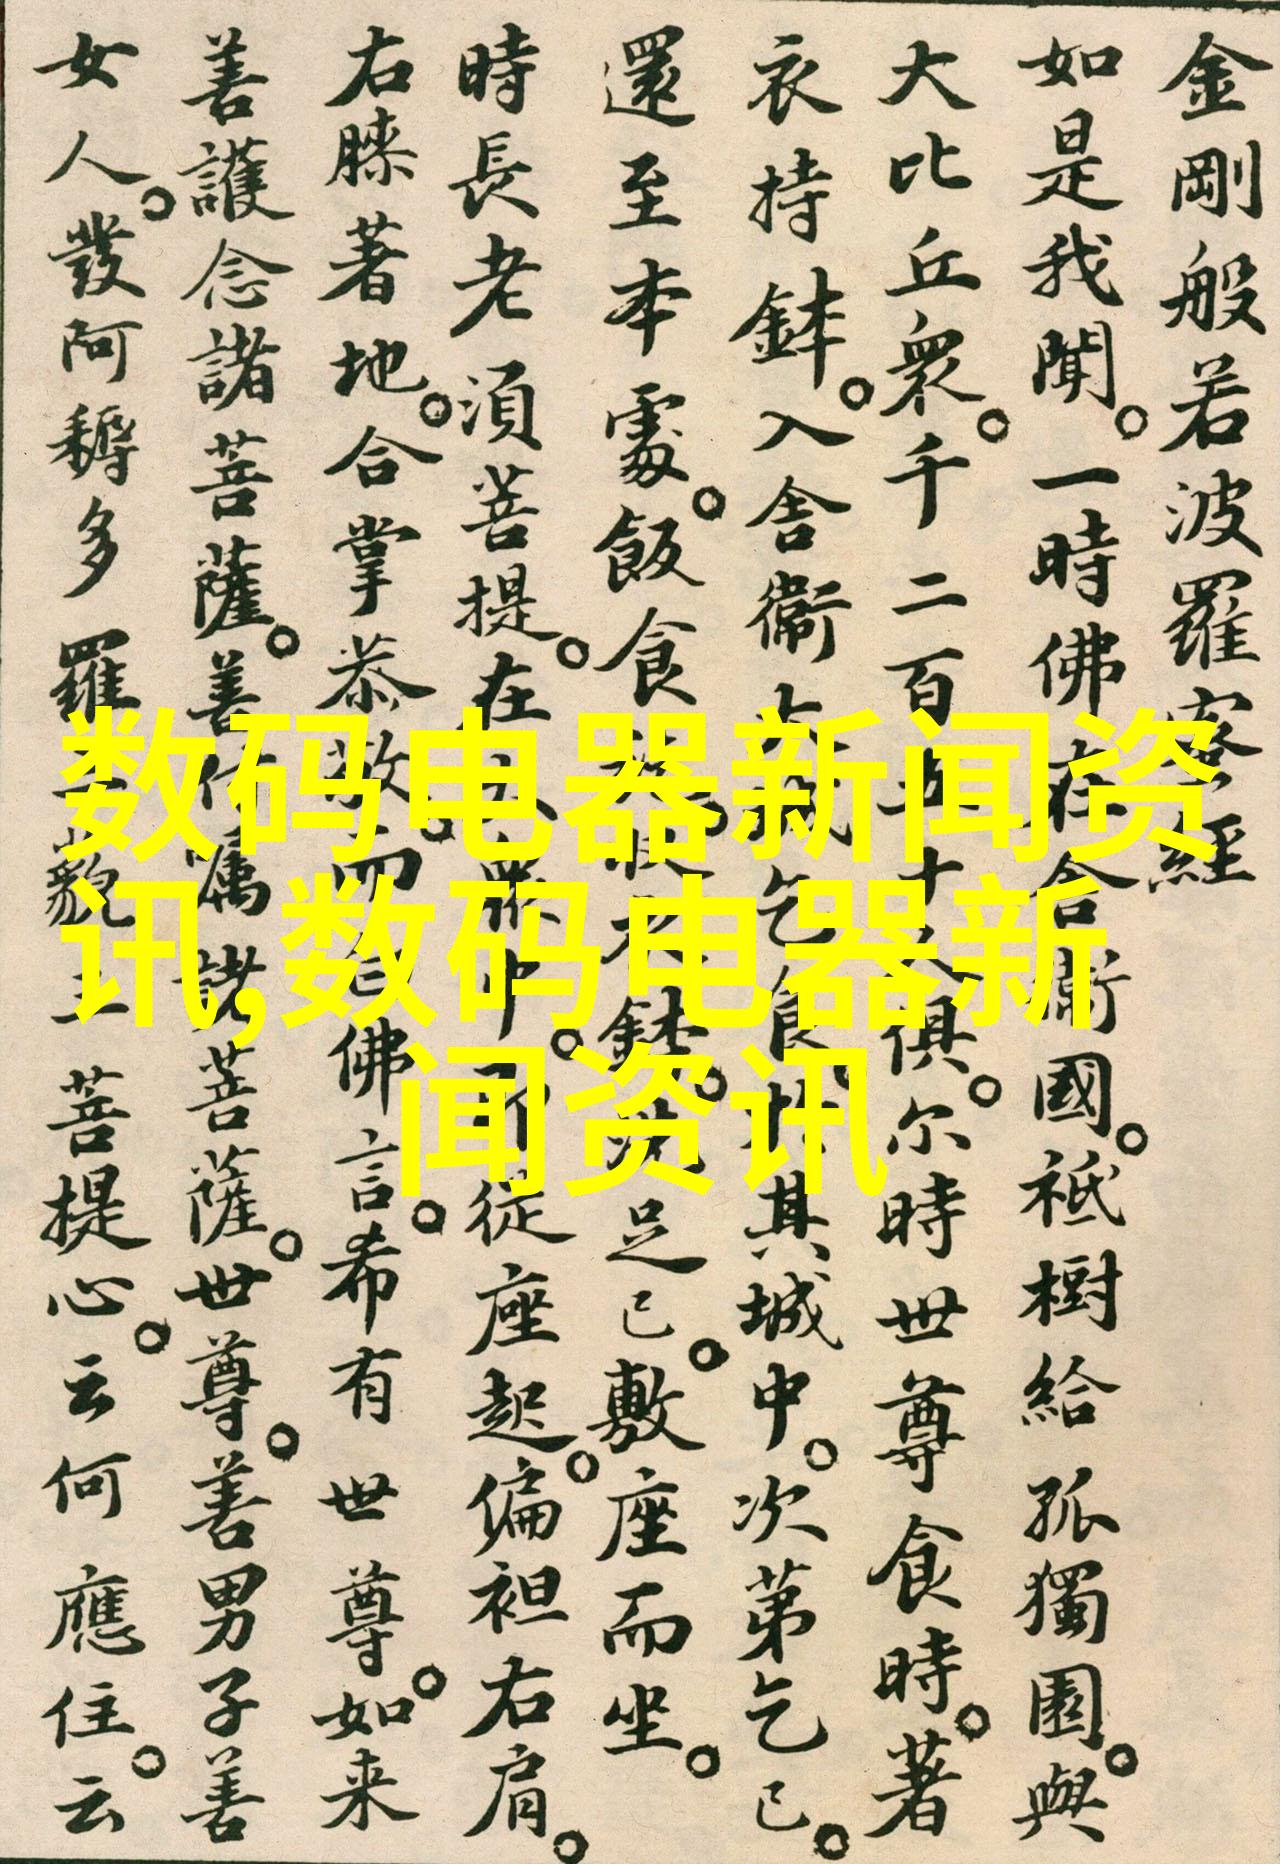 金剛般若波羅蜜經
如是我聞。一時佛在舍衛國。祇樹給孤獨園。與
大比丘衆。千二百五十人俱。尔時世尊食時。著
衣持鉢。入舍衛大城乞食。於其城中。次第乞已。
還至本處。飯食訖。收衣鉢。洗足已。敷座而坐。
時長老須菩提。在大衆中。即從座起。偏袒右肩。
右膝著地。合掌恭敬。而白佛言。希有世尊。如来
善護念諸菩薩。善付嘱諸菩薩。世尊。善男子善
女人。發阿耨多羅三藐三菩提心。云何應住。云
数码电器新闻资
讯,数码电器新
闻资讯